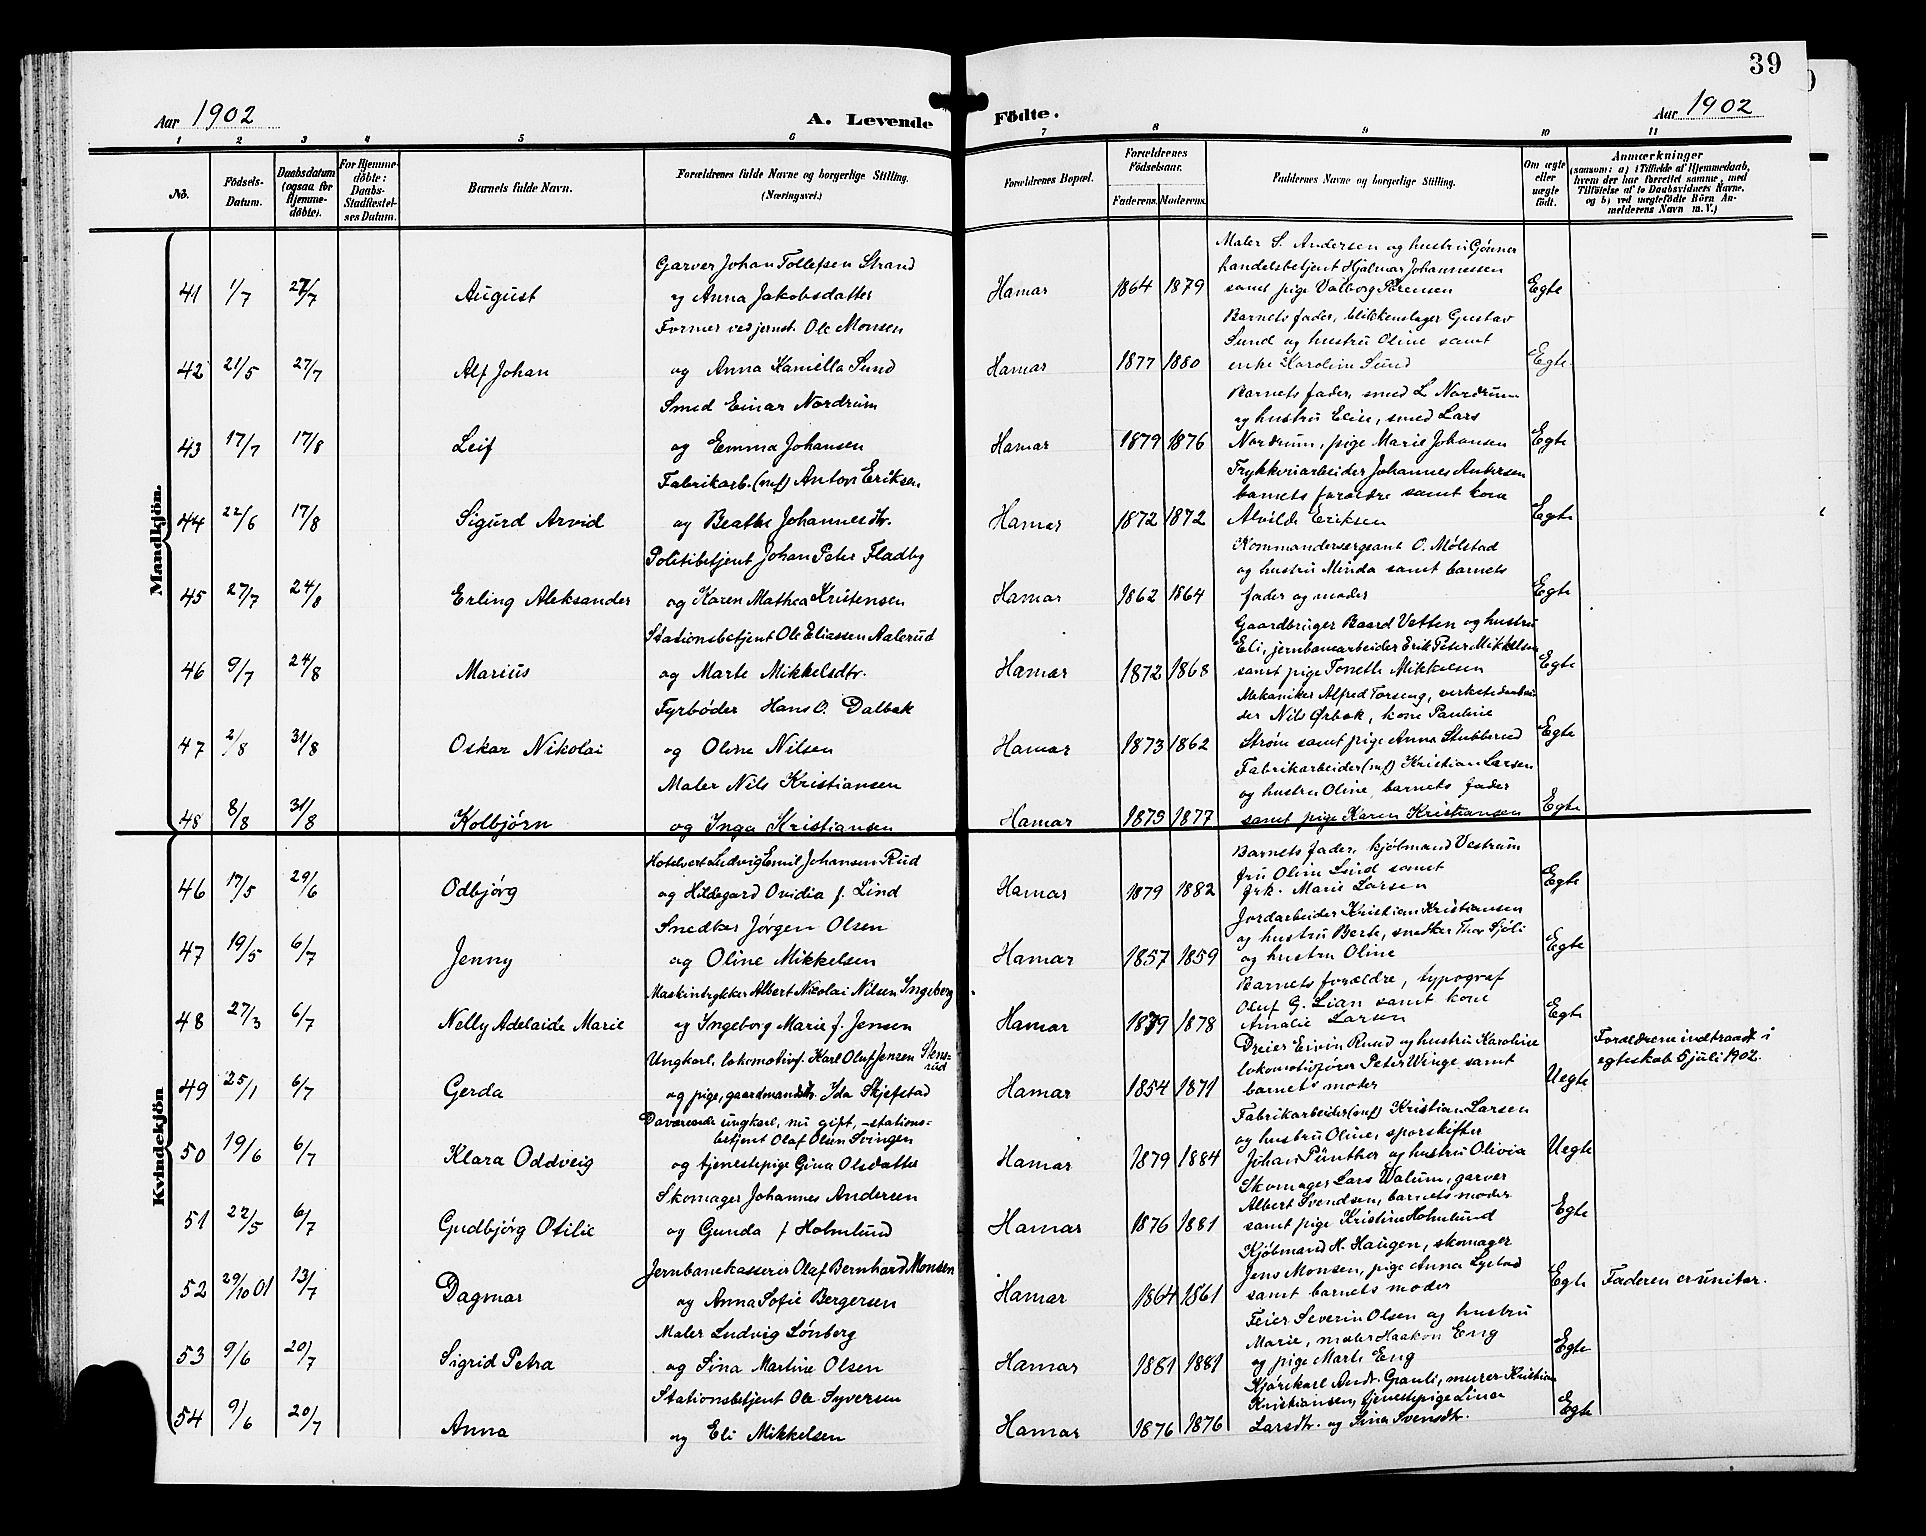 39
Aar 1902
A. Levende Födte.
Aar 1902
1 2 3 4 5 6 7 8 9 10 11
No. Födsels-Datum. Daabsdatum (ogsaa for Hjemme-döbte). For Hjemme-döbte: Daabs-Stadfæstel-ses Datum. Barnets fulde Navn. Forældrenes fulde Navne og borgerlige Stilling. (Næringsvei.) Forældrenes Bopæl. Forældrenes Födselsaar. Faderens. Moderens. Faddernes Navne og borgerlige Stilling. Om ægte eller uægte födt. Anmærkninger (saasom: a) i Tilfælde af Hjemmedaab, hvem der har forrettet samme, med Tilföielse af to Daabsvidners Navne, og b) ved uægtefödte Börn An-melderens Navn m. V.)
Mandkjön.
41 1/7 27/7 August
Garver Johan Tollefsen Strand
og Anna Jakobsdatter
Hamar 1864 1879
Maler S. Andersen og hustru Gönner
handelsbetjent Hjalmar Johannessen
samt pige Valborg Sörensen
Egte
42 21/5 27/7 Alf Johan
Former ved jernst. Ole Monsen
og Anna Kamilla Sund
Hamar 1877 1880
Barnets fader, blikkenslager Gustav
Sund og hustru Oline samt
enke Karoline Sund
Egte
43 17/7 17/8 Leif
Smed Einar Nordrum
og Emma Johansen
Hamar 1879 1876
Barnets fader, smed L. Nordrum
og hustru Elise, smed Lars
Nordrum, pige Marie Johansen
Egte
44 22/6 17/8 Sigurd Arvid
Fabrikarb. (mf) Anton Eriksen
og Beathe Johannesdtr.
Hamar 1872 1872
Trykkeriarbeider Johannes Andersen
barnets forældre samt kone
Alvilde Eriksen
Egte
45 27/7 24/8 Erling Aleksander
Politibetjent Johan Peter Fladby
og Karen Mathea Kristensen
Hamar 1862 1864
Kommandersergeant O. Mølstad
og hustru Minda samt barnets
fader og moder
Egte
46 9/7 24/8 Marius
Stationsbetjent Ole Eliassen Aalerud
og Marte Mikkelsdtr.
Hamar 1872 1868
Gaardbruger Baard Vatten og hustru
Eli, jernbanearbeider Erik Peter Mikkelsen
samt pige Tonette Mikkelsen
Egte
47 2/8 31/8 Oskar Nikolai
Fyrbøder Hans O. Dalbak
og Oline Nilsen
Hamar 1873 1862
Mekaniker Alfred Torseng, verkstedarbei-
der Nils Ørbæk, kone Pauline
Strøm samt pige Anna Stubberud
Egte
48 8/8 31/8 Kolbjørn
Maler Nils Kristiansen
og Inga Kristiansen
Hamar 1873 1877
Fabrikarbeider (mf) Kristian Larsen
og hustru Oline, barnets fader
samt pige Karen Kristiansen
Egte
Kvindekjön
46 17/5 29/6 Odbjørg
Hotelvert Ludvig Emil Johansen Rud
og Hildegard Ovidia f. Lind
Hamar 1879 1882
Barnets fader, kjøbmand Vestrum
fru Oline Lund samt
frk. Marie Larsen
Egte
47 19/5 6/7 Jenny
Snedker Jørgen Olsen
og Oline Mikkelsen
Hamar 1857 1859
Jordarbeider Kristian Kristiansen
og hustru Berte, snedker Thor Sjöli
og hustru Oline
Egte
48 27/3 6/7 Nelly Adelaide Marie
Maskintrykker Albert Nicolai Nilsen Ingeberg
og Ingeborg Marie f. Jensen
Hamar 1879 1878
Barnets forældre, typograf
Oluf G. Lian samt kone
Amalie Larsen
Egte
49 25/1 6/7 Gerda
Ungkarl, lokomotivf. Karl Oluf Jensen Stens-
rud
og pige, gaardmandsdtr. Ida Skjefstad
Hamar 1854 1871
Dreier Eivin Ruud og hustru Karoline
lokomotivfører Peter Winge samt
barnets moder
Uegte
Forældrene indtraadt i
egteskab 5 juli 1902.
50 19/6 6/7 Klara Oddveig
Daværende ungkarl, nu gift, stations-
betjent Olaf Olsen Svingen
og tjenestepige Gina Olsdatter
Hamar 1879 1884
Fabrikarbeider (mf) Kristian Larsen
og hustru Oline, sporskifter
Johan Pünther og hustru Olivia
Uegte
51 22/5 6/7 Gudbjørg Otilie
Skomager Johannes Andersen
og Gunda f Holmlund
Hamar 1876 1881
Skomager Lars Walum, garver
Albert Svendsen, barnets moder
samt pige Kristine Holmlund
Egte
52 29/10 01 13/7 Dagmar
Jernbanekasserer Olaf Bernhard Monsen
og Anna Sofie Bergersen
Hamar 1864 1861
Kjøbmand H. Haugen, skomager
Jens Monsen, pige Anna Lystad
samt barnets moder
Egte
Faderen er unitar.
53 9/6 20/7 Sigrid Petra
Maler Ludvig Lønberg
og Sina Martine Olsen
Hamar 1881 1881
Feier Severin Olsen og hustru
Marie, maler Haakon Eng
og pige Marte Eng
Egte
54 9/6 20/7 Anna
Stationsbetjent Ole Syversen
og Eli Mikkelsen
Hamar 1876 1876
Kjørekarl Andr. Grauli, murer Kristian
Kristiansen, tjenestepige Lina
Larsdtr. og Sina Svensdtr.
Egte